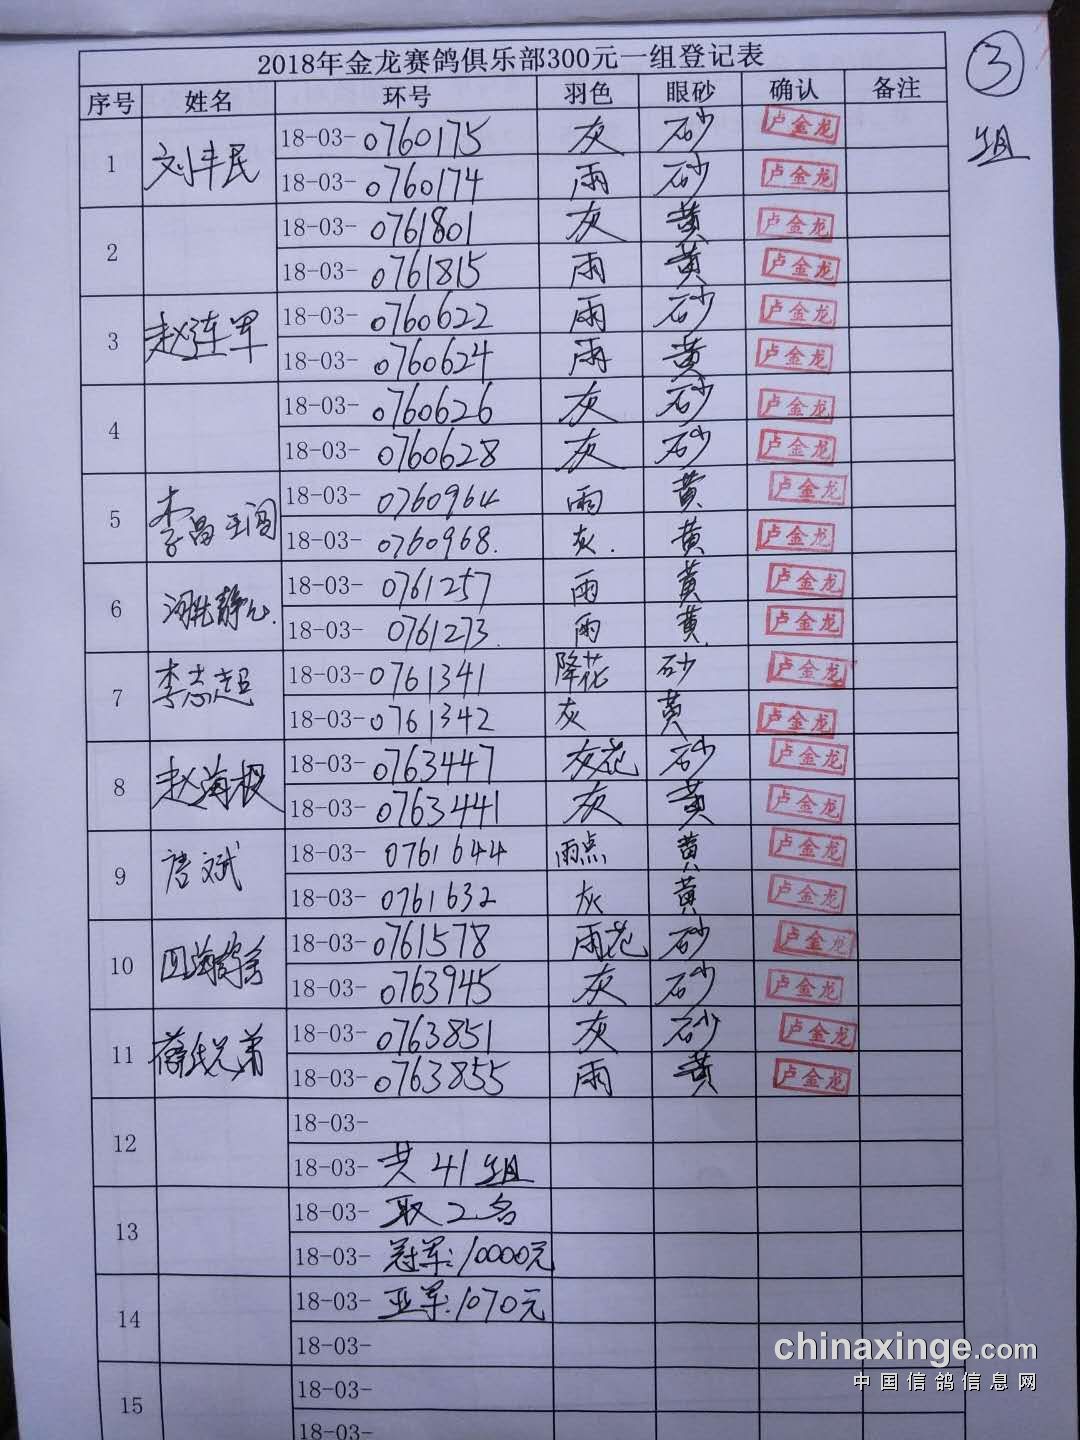 2018年金龙赛鸽俱乐部300元一组登记表
③
组
序号 姓名 环号 羽色 眼砂 确认 备注
1 刘丰民 18-03-0760175 灰 砂 卢金龙
18-03-0760174 雨 砂 卢金龙
2 18-03-0761801 灰 黄 卢金龙
18-03-0761815 雨 黄 卢金龙
3 赵连军 18-03-0760622 雨 砂 卢金龙
18-03-0760624 雨 黄 卢金龙
4 18-03-0760626 灰 砂 卢金龙
18-03-0760628 灰 砂 卢金龙
5 李昌 18-03-0760964 雨 黄 卢金龙
18-03-0760968. 灰. 黄 卢金龙
6 18-03-0761257 雨 黄 卢金龙
18-03-0761273. 雨 黄 卢金龙
7 李志超 18-03-0761341 降花 砂 卢金龙
18-03-0761342 灰 黄 卢金龙
8 赵海根 18-03-0763447 灰花 砂 卢金龙
18-03-0763441 灰 黄 卢金龙
9 唐斌 18-03-0761644 雨点 黄 卢金龙
18-03-0761632 灰 黄 卢金龙
10 四海 18-03-0761578 雨花 砂 卢金龙
18-03-0763945 灰 砂 卢金龙
11 兄弟 18-03-0763851 灰 砂 卢金龙
18-03-0763855 雨 黄 卢金龙
12 18-03-
18-03-共41组
13 18-03-取2名
18-03-冠军:10000元
14 18-03-亚军:1070元
18-03-
15 18-03-
18-03-
chinaxinge.com
中国信鸽信息网